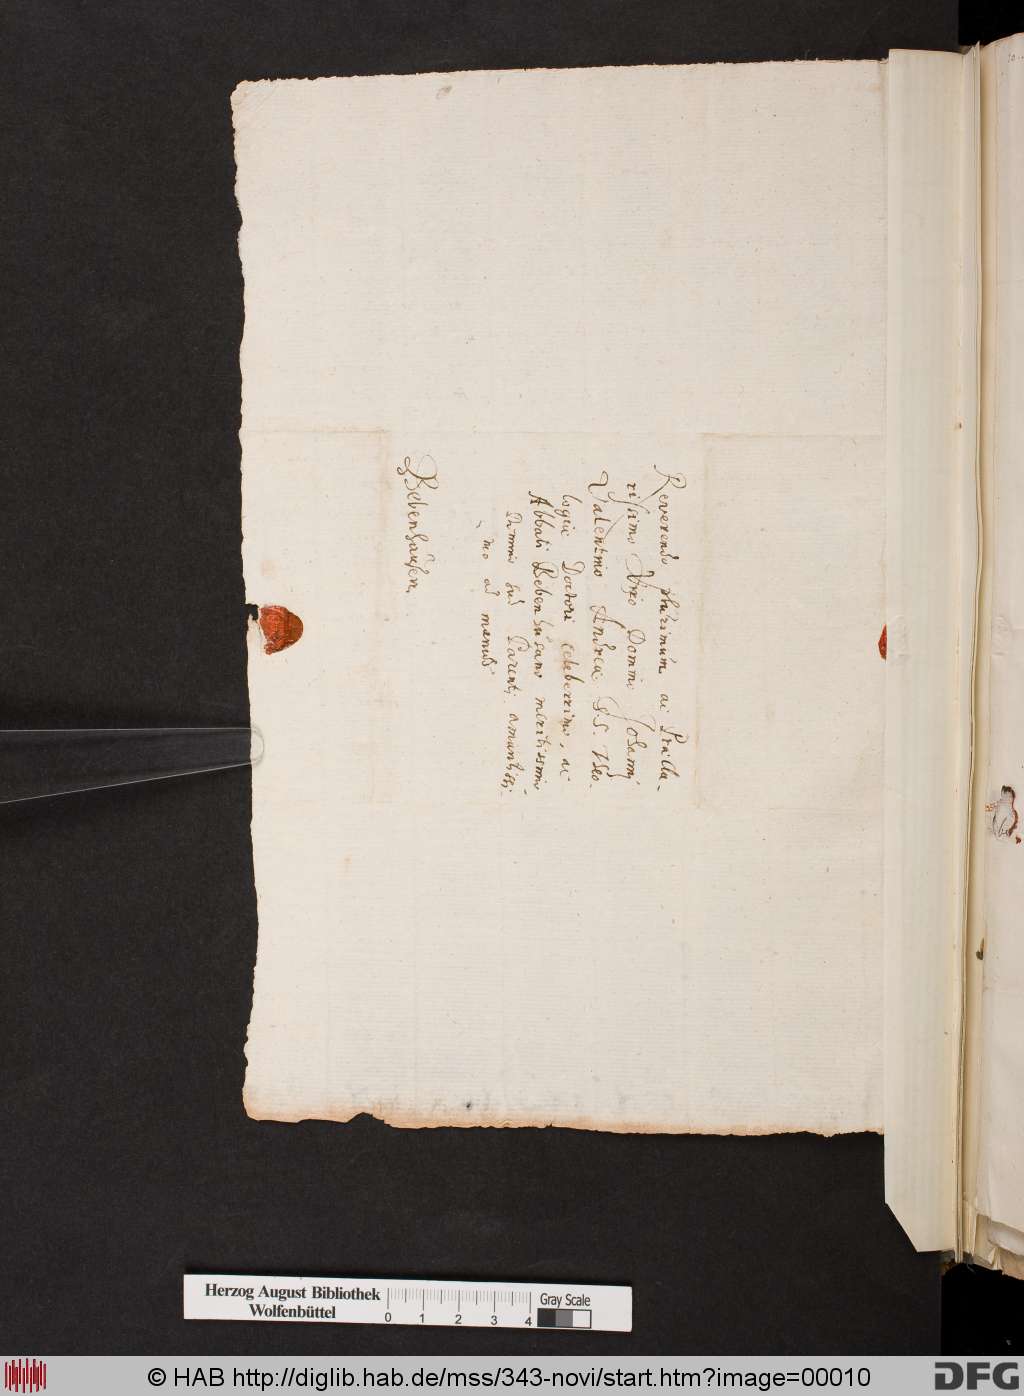 Reverendo plurimum ac Præcla-
rissimo Viro Domino Johanni
Valentino Andreæ SS. Theo-
logiæ Doctori celeberrimo, ac
Abbati Bebenhusano meritissimo
Domino suo Parenti amantissi-
mo ad manus
Bebenhausen
Herzog August Bibliothek
Wolfenbüttel
0 1 2 3 4
Gray Scale
© HAB http://diglib.hab.de/mss/343-novi/start.htm?image=00010
DFG